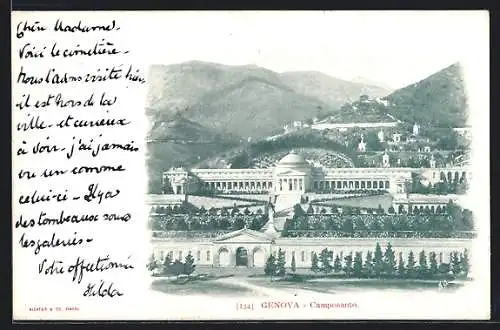 Chère Madame -
Voici le cimetière -
nous l'avons visité hier,
il est hors de la
ville - et curieux
à voir - j'ai jamais
vu un comme
celui-ci - Il y a
des tombeaux sous
les galeries -
Votre affection
Hilda
[134] GENOVA - Camposanto.